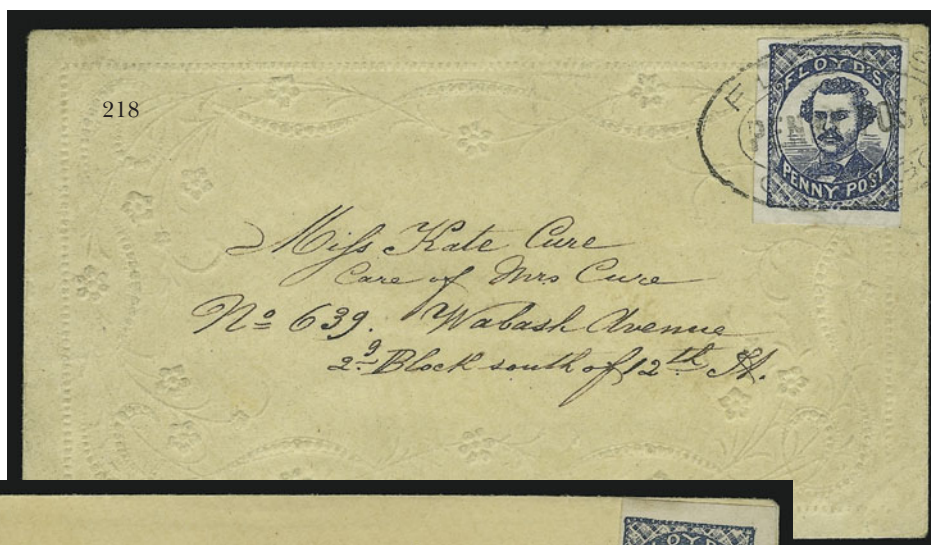 218
FLOYD'S
PENNY POST
Miss Kate Cure
Care of Mrs Cure
No 639. Wabash Avenue
2d Block south of 12th St.